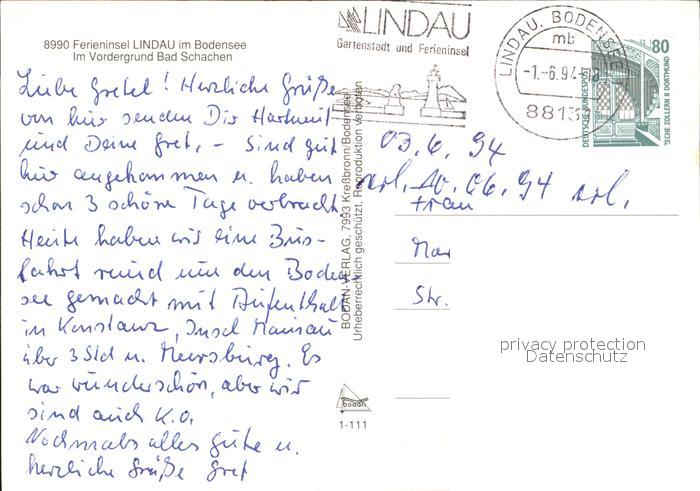 8990 Ferieninsel LINDAU im Bodensee
Im Vordergrund Bad Schachen
Liebe Gretel! Herzliche Grüße
von hier senden Dir Hartmut
und Deine Gret. – Sind gut
hier angekommen u. haben
schon 3 schöne Tage verbracht.
Heute haben wir eine Bus-
fahrt rund um den Boden-
see gemacht mit Aufenthalt
in Konstanz, Insel Mainau
über 3 Std u. Meersburg. Es
war wunderschön, aber wir
sind auch K.O.
Nochmals alles Gute u.
herzliche Grüße Gret
BODAN-VERLAG, 7993 Kreßbronn/Bodensee
Urheberrechtlich geschützt. Reproduktion verboten
bodan
1-111
LINDAU
Gartenstadt und Ferieninsel
LINDAU, BODENSEE
mb
-1.-6.94-18
8813
80
DEUTSCHE BUNDESPOST
ZECHE ZOLLERN II DORTMUND
03.6.94
erl. 10.06.94 erl.
Frau
Mar
Str.
privacy protection
Datenschutz